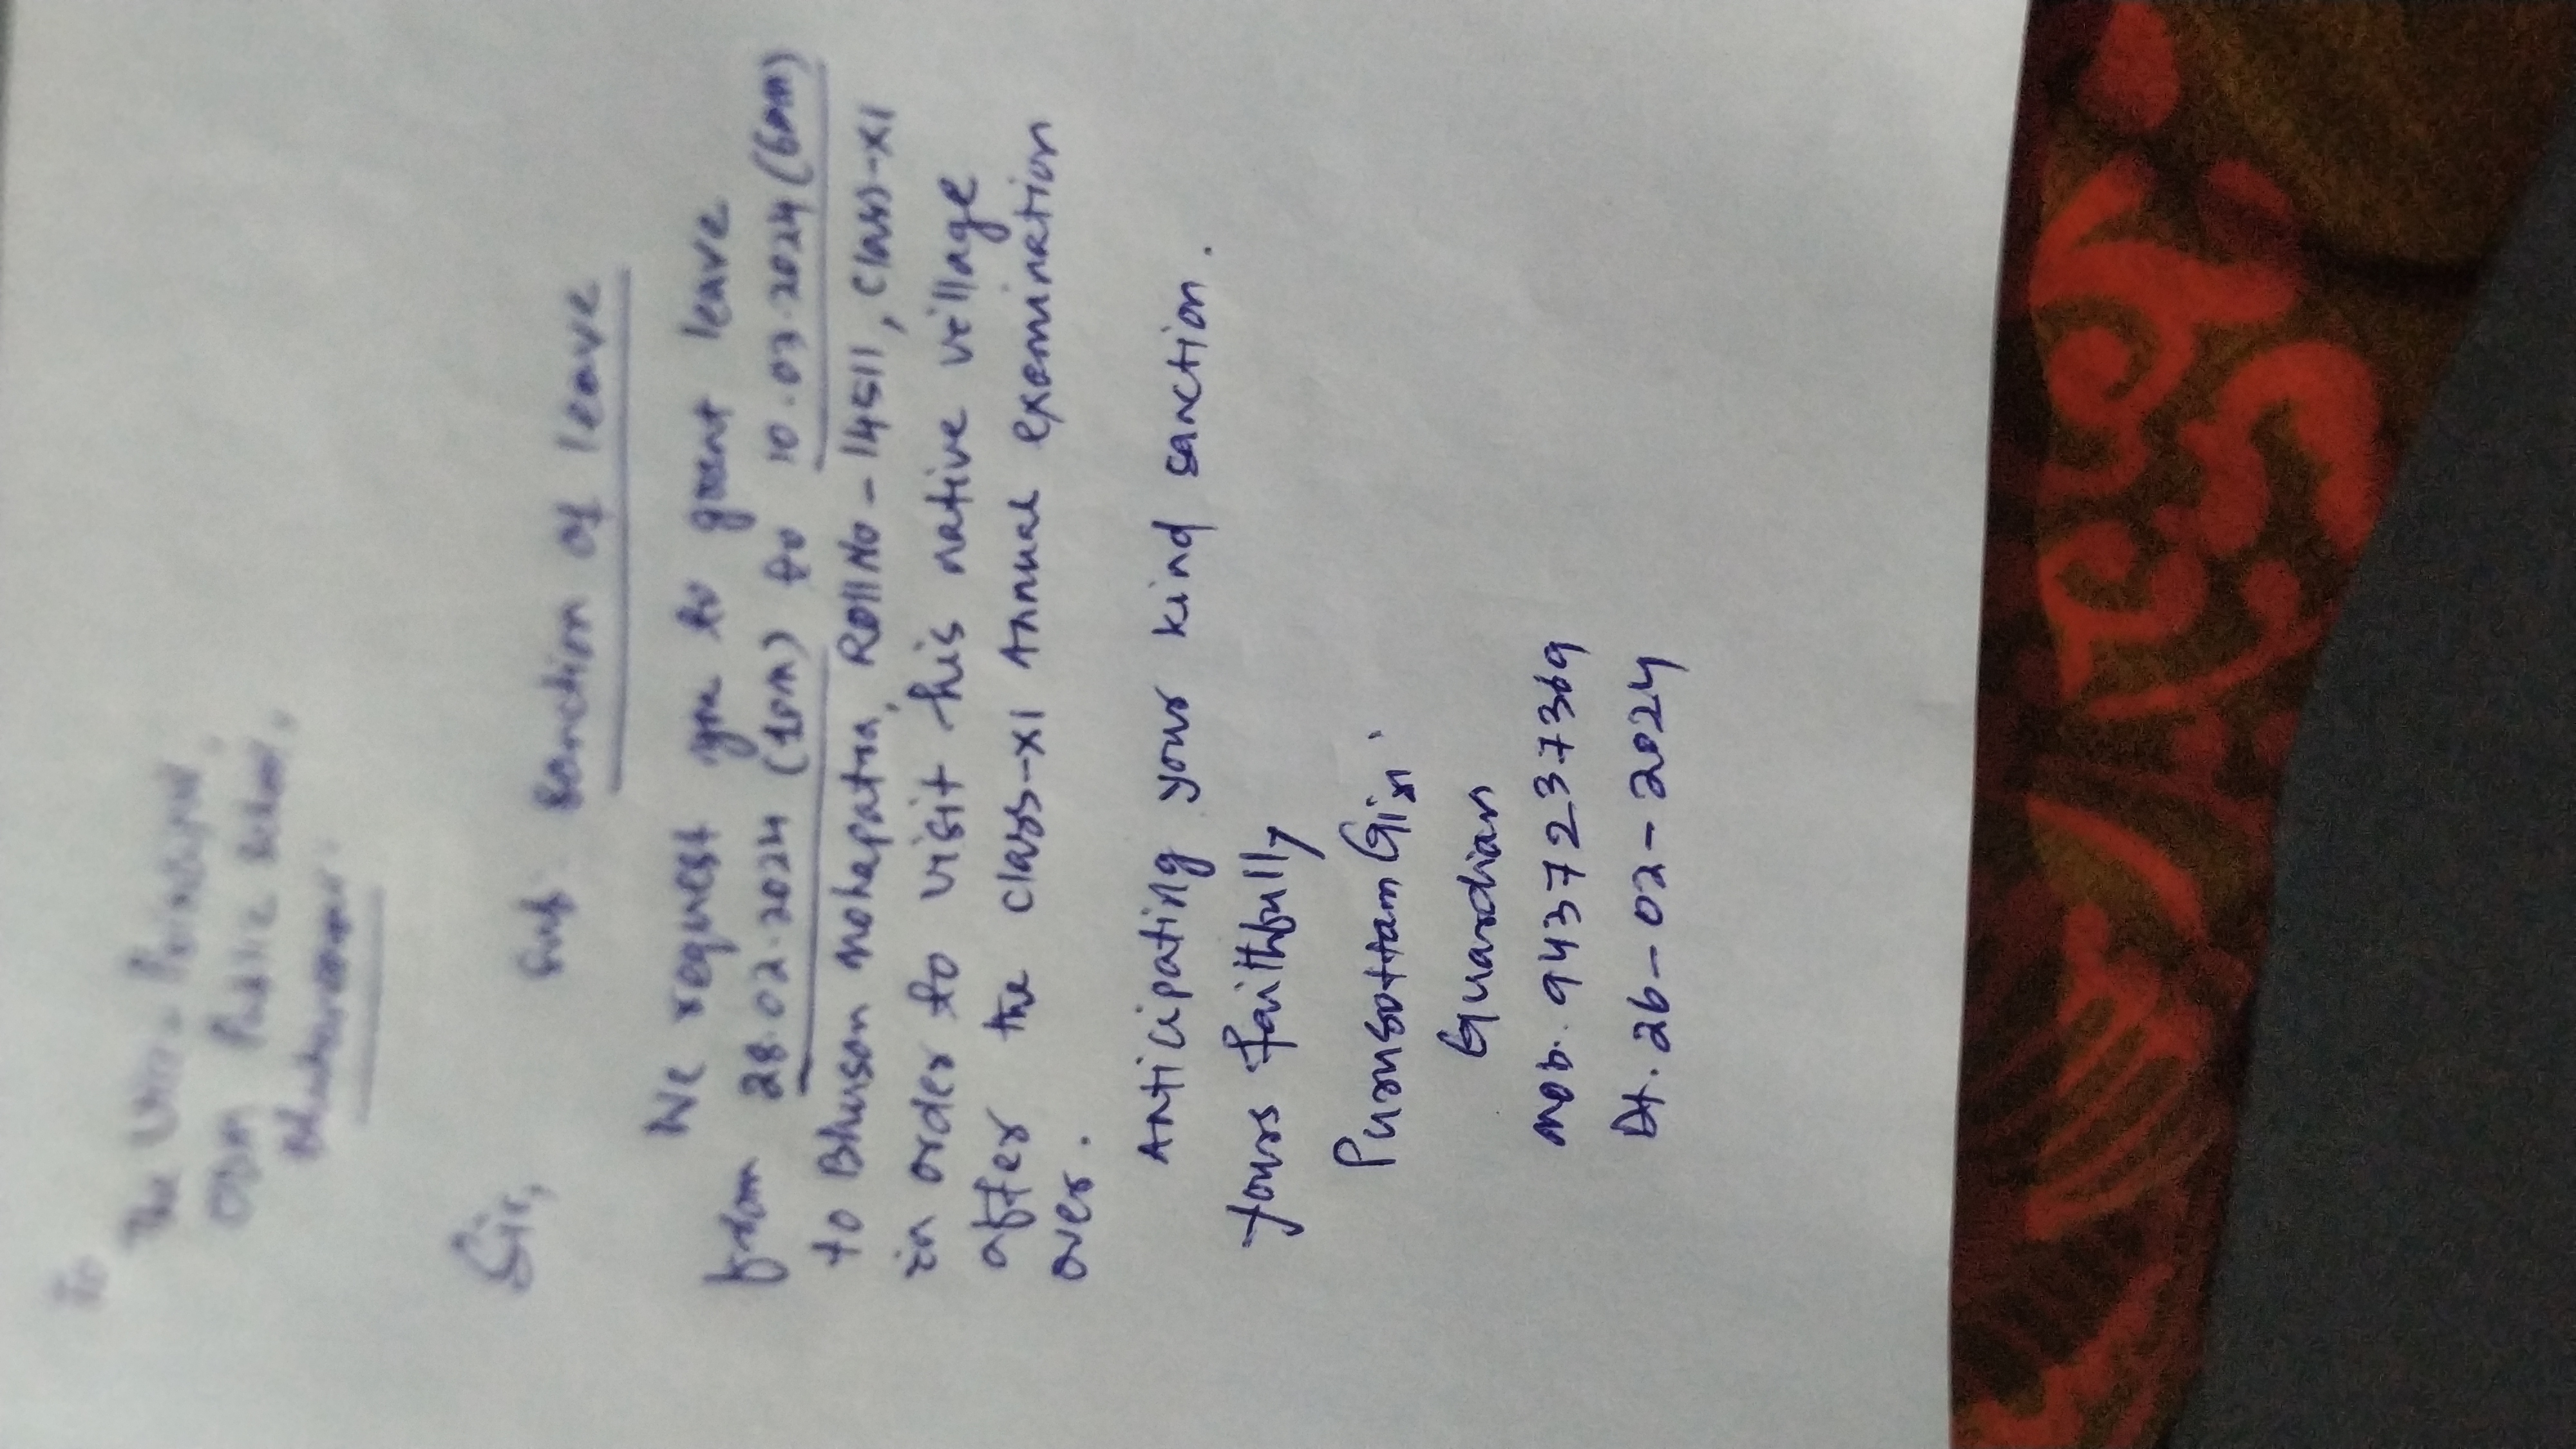 To
The Vice-Principal,
ODM Public School,
Bhubaneswar.
Sir,
Sub: Sanction of leave
We request you to grant leave
from 28.02.2024 (1pm) to 10.03.2024 (6pm)
to Bhuson Mohapatra, Roll No - 14511, Class-XI
in order to visit his native village
after the class-XI Annual examination
over.
Anticipating your kind sanction.
Yours faithfully
Purusottam Giri.
Guardian
Mob. 9437237369
Dt. 26-02-2024